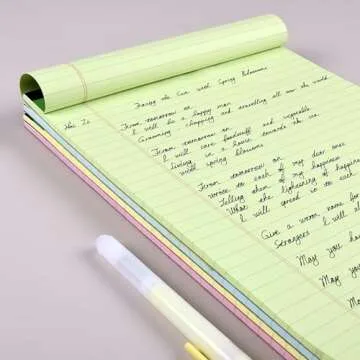 Facing the Sea with Spring Blossoms
Hai Zi
From tomorrow on
I will be a happy man
Grooming, chopping and travelling all over the world
From tomorrow on
I will care foodstuff and vegetable
Living in a house towards the sea
with spring blossoms
From tomorrow on
write to each of my dear ones
Telling them of my happiness
What the lightening of happiness
I will spread it to each
Give a warm name for
Strangers I will al
May you ha
May you
May